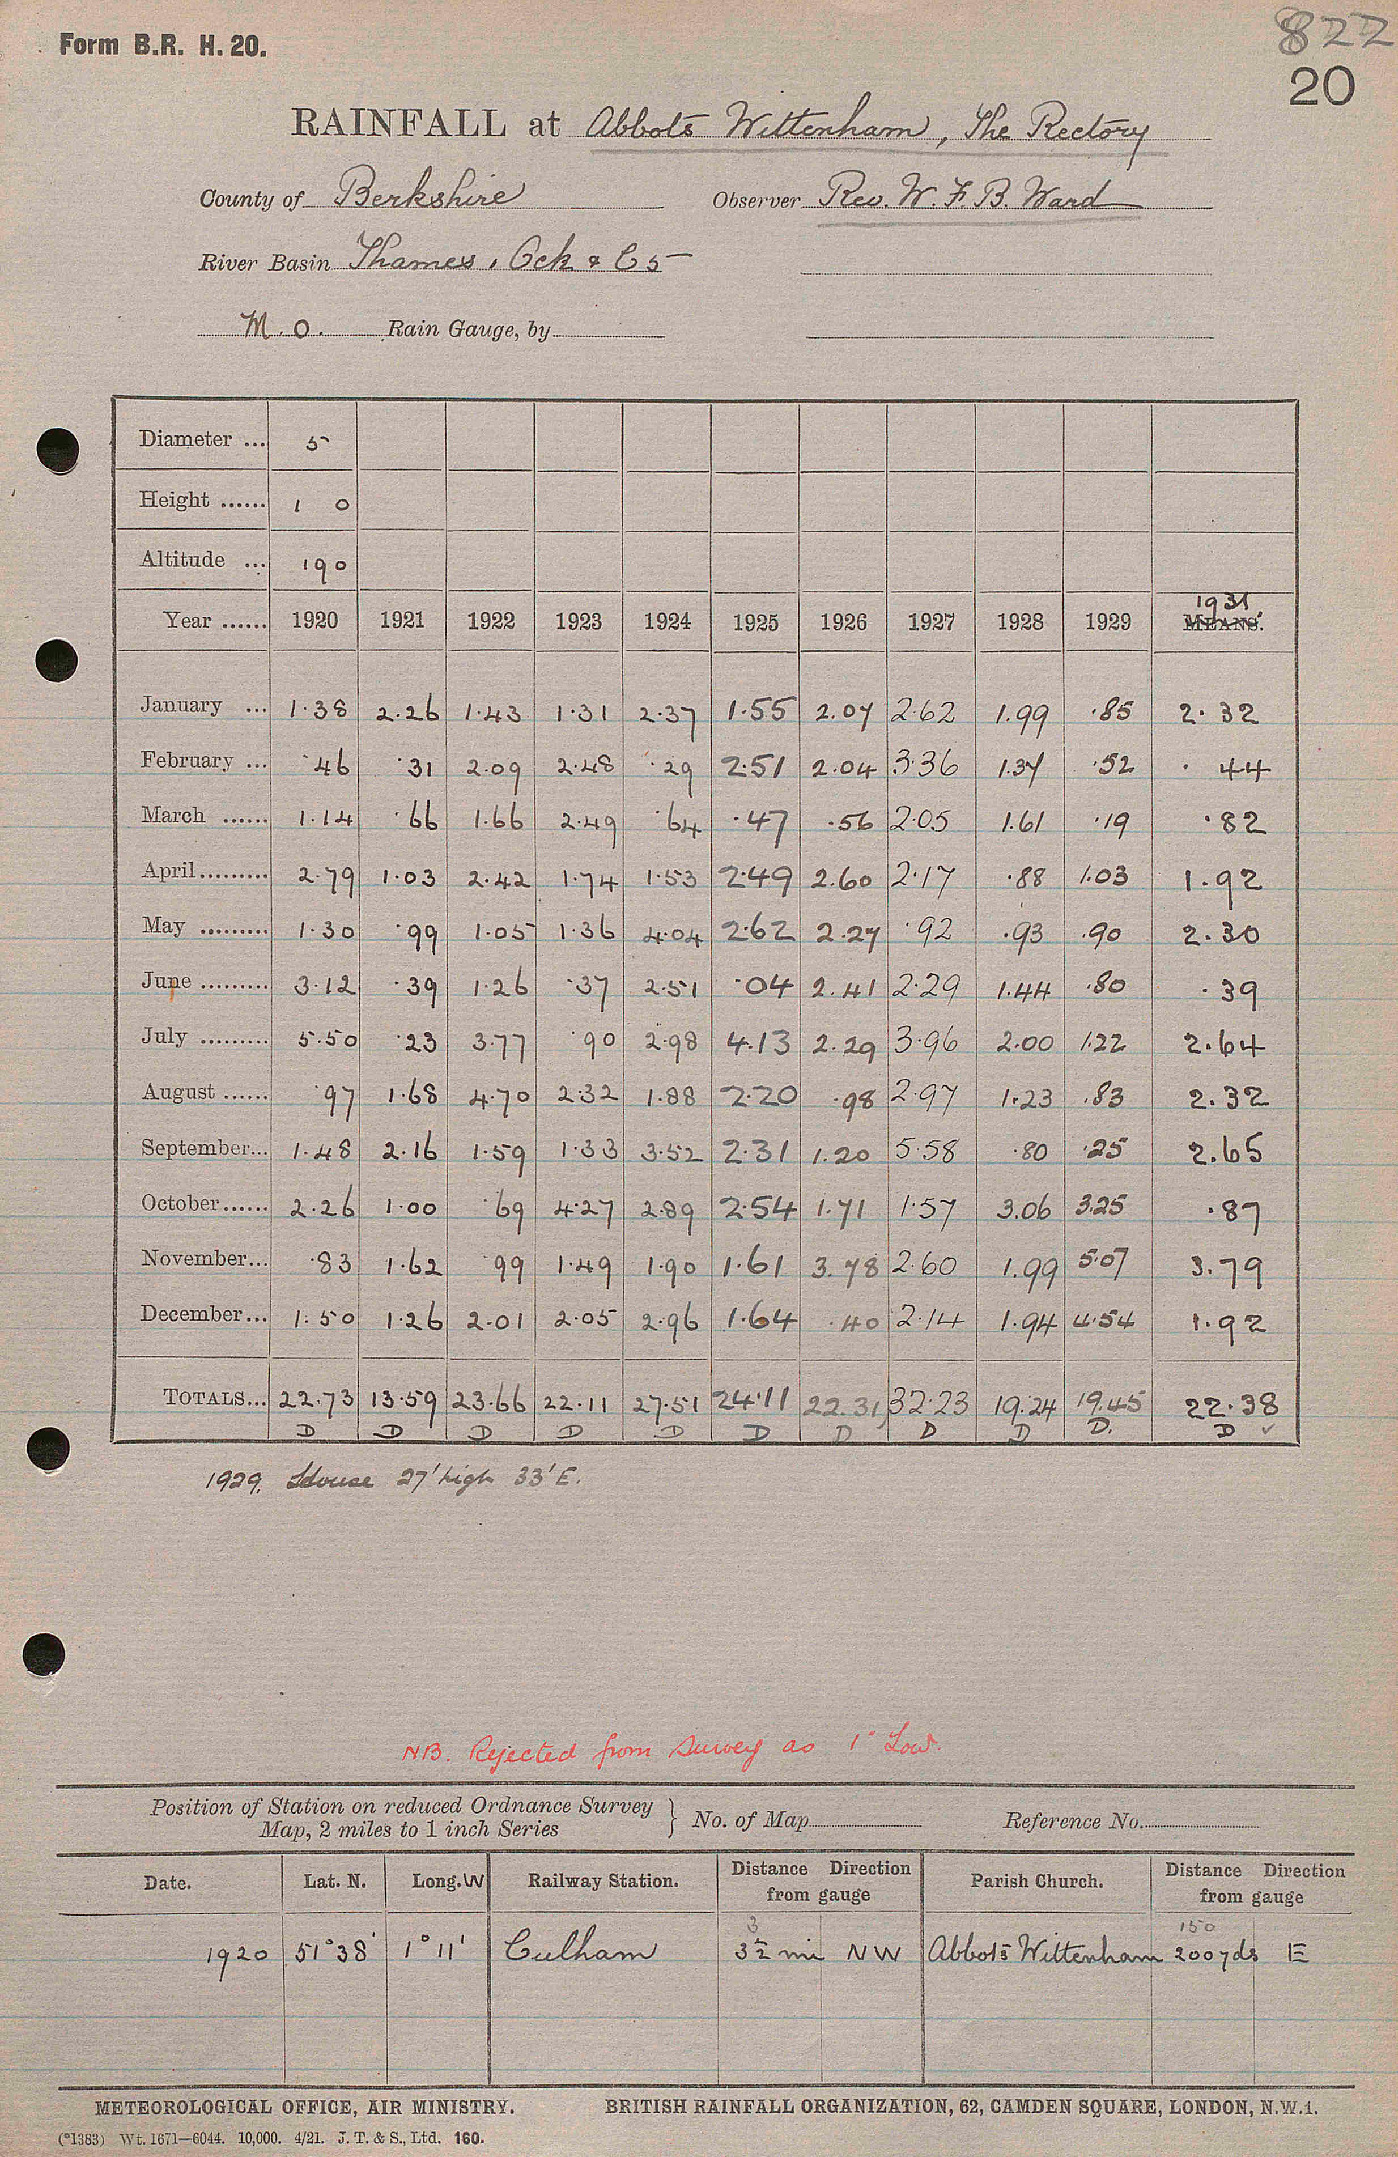 Form B.R. H. 20.
822
20
RAINFALL at Abbots Wittenham, The Rectory
County of Berkshire Observer Rev. W. F. B. Ward
River Basin Thames, Ock & C5
M.O. Rain Gauge, by
Diameter ... 5
Height ...... 1 0
Altitude ... 190
1931.
Year ...... 1920 1921 1922 1923 1924 1925 1926 1927 1928 1929 MEANS.
January ... 1.38 2.26 1.43 1.31 2.37 1.55 2.07 2.62 1.99 .85 2.32
February ... .46 .31 2.09 2.48 .29 2.51 2.04 3.36 1.37 .52 .44
March ...... 1.14 .66 1.66 2.49 .64 .47 .56 2.05 1.61 .19 .82
April ......... 2.79 1.03 2.42 1.74 1.53 2.49 2.60 2.17 .88 1.03 1.92
May ......... 1.30 .99 1.05 1.36 4.04 2.62 2.27 .92 .93 .90 2.30
June ......... 3.12 .39 1.26 .37 2.51 .04 2.41 2.29 1.44 .80 .39
July ......... 5.50 .23 3.77 .90 2.98 4.13 2.29 3.96 2.00 1.22 2.64
August ...... .97 1.68 4.70 2.32 1.88 2.20 .98 2.97 1.23 .83 2.32
September... 1.48 2.16 1.59 1.33 3.52 2.31 1.20 5.58 .80 .25 2.65
October...... 2.26 1.00 .69 4.27 2.89 2.54 1.71 1.57 3.06 3.25 .87
November... .83 1.62 .99 1.49 1.90 1.61 3.78 2.60 1.99 5.07 3.79
December... 1.50 1.26 2.01 2.05 2.96 1.64 .40 2.14 1.94 4.54 1.92
TOTALS... 22.73 13.59 23.66 22.11 27.51 24.11 22.31 32.23 19.24 19.45 22.38
D D D D D D D D D D. D ✓
1929. House 27' high 33' E.
NB. Rejected from survey as 1" Low.
Position of Station on reduced Ordnance Survey Map, 2 miles to 1 inch Series } No. of Map Reference No.
Date. Lat. N. Long. W Railway Station. Distance Direction from gauge Parish Church. Distance Direction from gauge
3 150
1920 51°38' 1°11' Culham 3½ mi NW Abbots Wittenham 200 yds E
METEOROLOGICAL OFFICE, AIR MINISTRY. BRITISH RAINFALL ORGANIZATION, 62, CAMDEN SQUARE, LONDON, N.W.1.
(*1383) Wt. 1671—6044. 10,000. 4/21. J. T. & S., Ltd. 160.